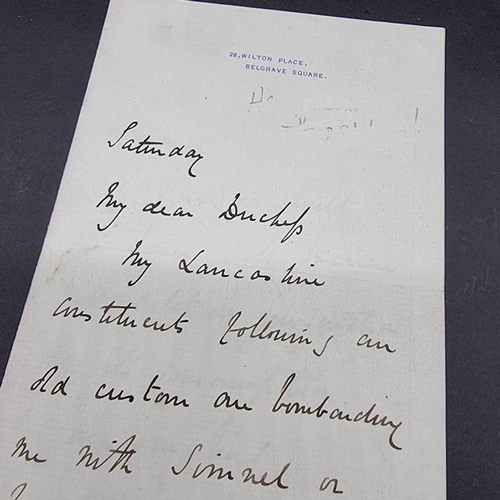 26, WILTON PLACE,
BELGRAVE SQUARE.
Saturday
My dear Duchess
My Lancashire
constituents following an
old custom are bombarding
me with Simnel or